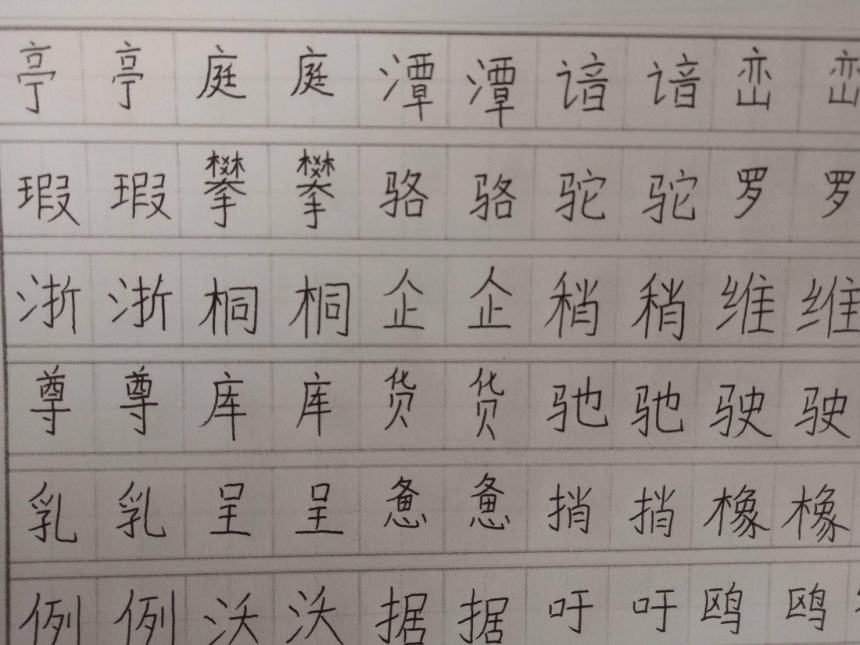 亭亭庭庭潭潭谙谙峦峦
瑕瑕攀攀骆骆驼驼罗罗
浙浙桐桐企企稍稍维维
尊尊库库货货驰驰驶驶
乳乳呈呈惫惫捎捎橡橡
例例沃沃据据吁吁鸥鸥